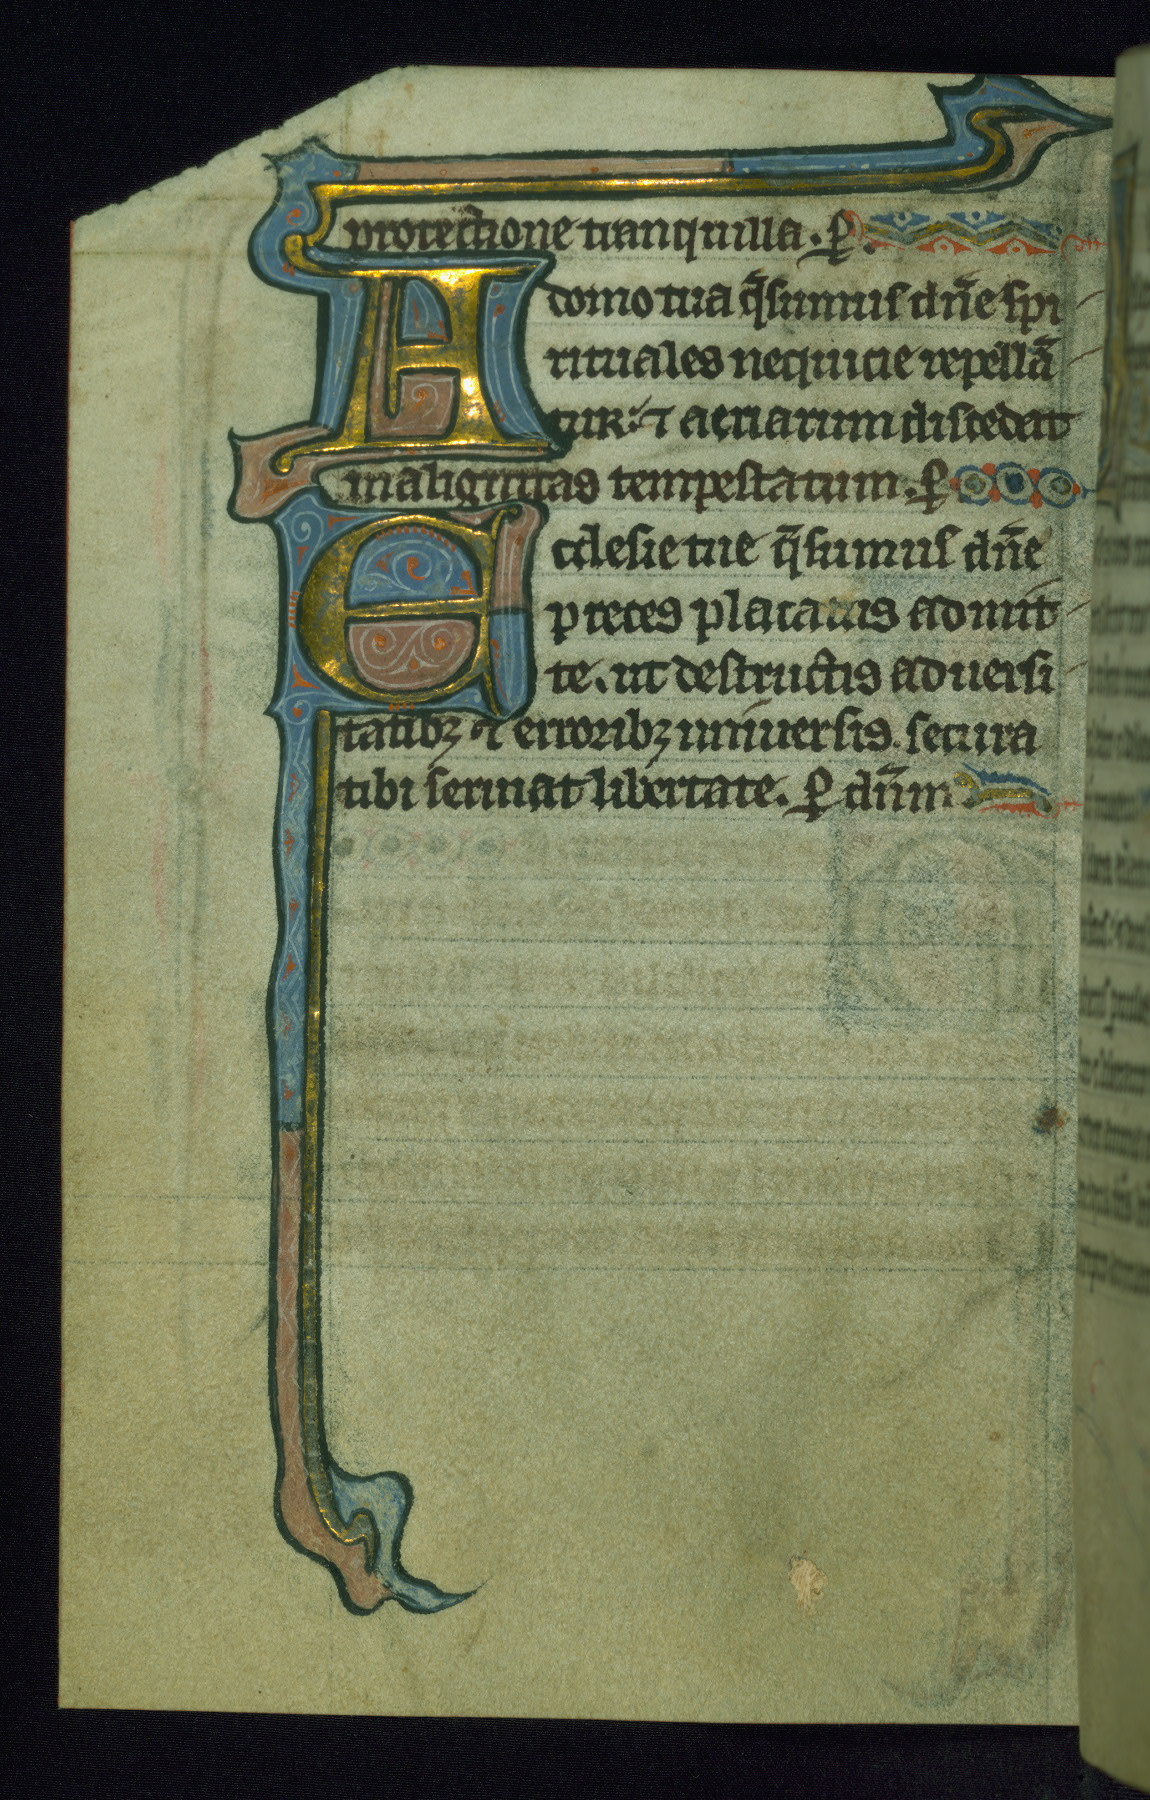 protectione tranquilla. ꝑ.
A domo tua q̄sumus dn̄e spi
rituales nequicie repellā
tur: ⁊ aeriarum discedat
malignitas tempestatum. ꝑ
Ecclesie tue q̄sumus dn̄e
preces placatus admit
te. ut destructis aduersi
tatibꝫ ⁊ erroribꝫ uniuersis. secura
tibi seruiat libertate. ꝑ dn̄m.